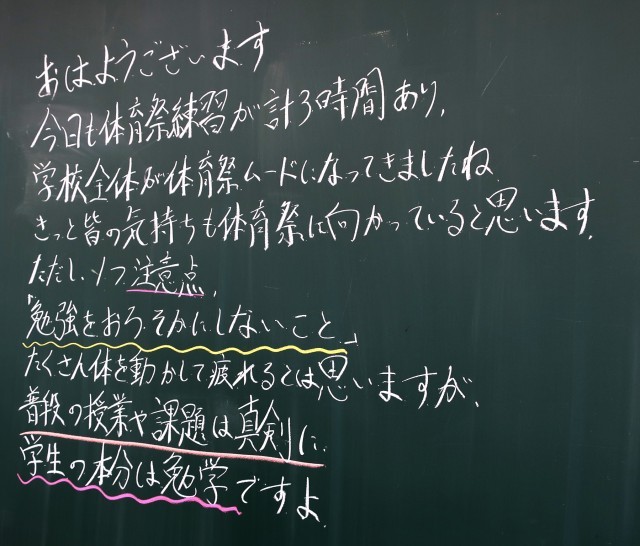 おはようございます
今日も体育祭練習が計3時間あり、
学校全体が体育祭ムードになってきましたね
きっと皆の気持ちも体育祭に向かっていると思います。
ただし1つ注意点、
「勉強をおろそかにしないこと。」
たくさん体を動かして疲れるとは思いますが、
普段の授業や課題は真剣に
学生の本分は勉学ですよ